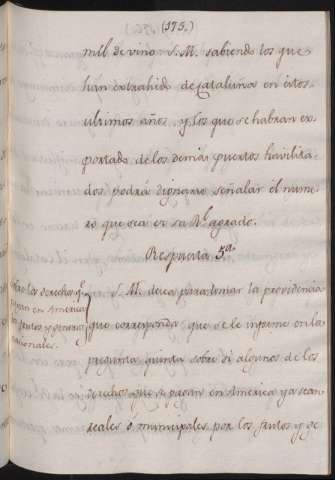 (175.)
mil de vino. S. M. sabiendo los que
hán extrahido de Cataluña en estos
ultimos años, y los que se habran ex-
portado de los demas puertos havilita-
dos podrá dignarse señalar el nume-
ro que sea de su Rl. agrado.
Respuesta 5ª
los derechos qe.
pagan en America
los frutos y generos
nacionales.
S. M. desea para tomar la providencia
que corresponda que se le informe en la
pregunta quinta sobre si algunos de los
derechos que se pagan en America ya sean
reales ó municipales por los frutos y ge-